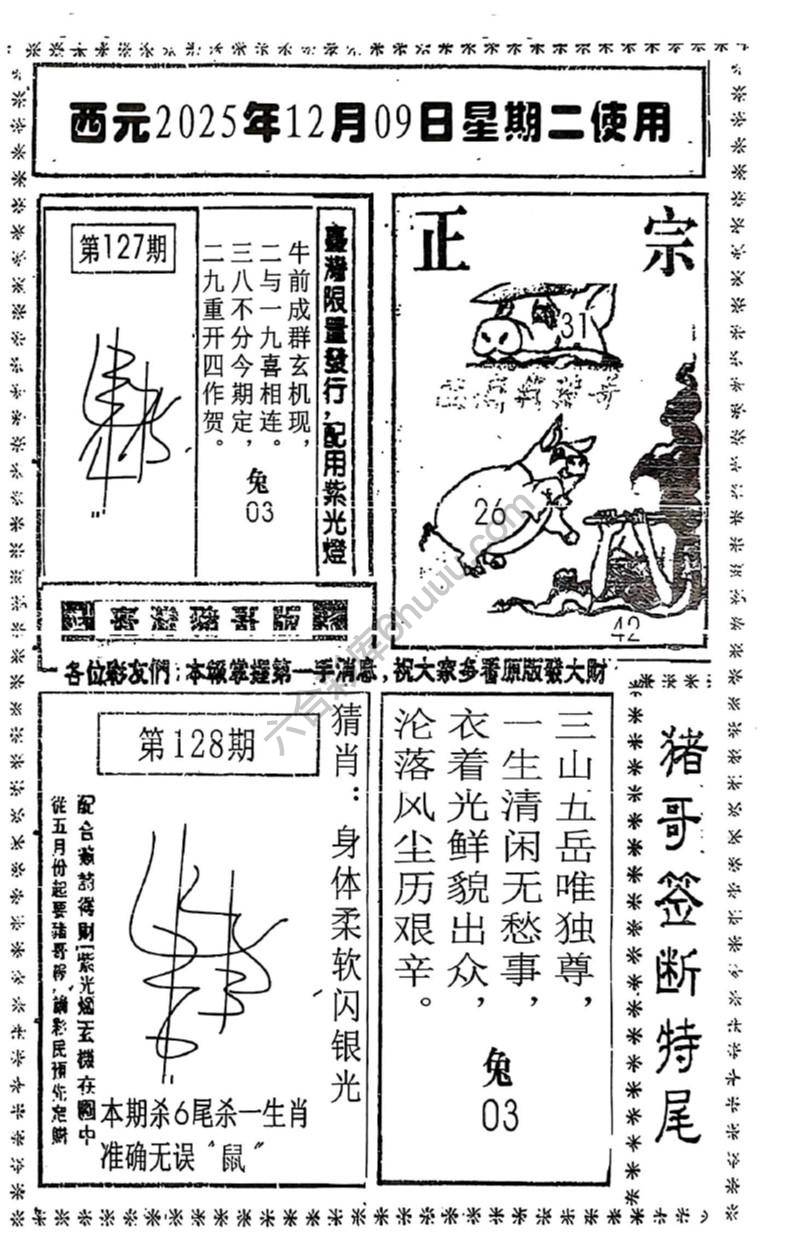 西元2025年12月09日星期二使用
第127期
臺灣限量發行，配用紫光燈
牛前成群玄机现，
二与一九喜相连。
三八不分今期定，
二九重开四作贺。
兔
03
正宗
31
26
42
各位彩友們：本報掌握第一手消息，祝大家多看原版發大財
第128期
猜肖：身体柔软闪银光
從五月份起要豬哥報，
本期杀6尾杀一生肖
准确无误“鼠”
三山五岳唯独尊，
一生清闲无愁事，
衣着光鲜貌出众，
沦落风尘历艰辛。
兔
03
猪哥签断特尾
六合彩库6huuu.com